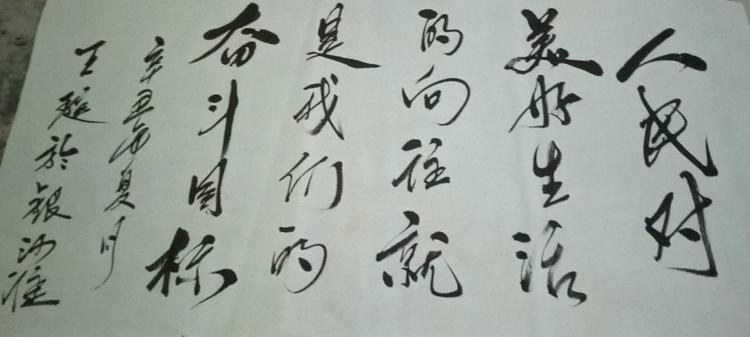 人民对
美好生活
的向往就
是我们的
奋斗目标
辛丑年夏月
王超於银沙滩